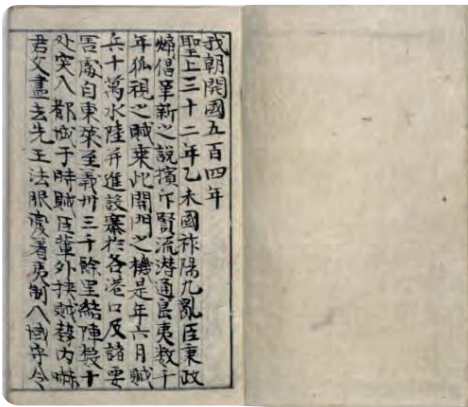 我朝開國五百四年
聖上三十二年乙未國祚陽九亂臣秉政
倡革新之說擯斥賢流潛通島夷數千
年狐視之賊乘此開門之機是年六月賊
兵十萬水陸并進設寨於各港口及諸要
害處自東萊至義州三千餘里結陣數十
處突入都城于時賊臣輩外挾賊勢內嚇
君父盡去先王法服變着夷制八域守令